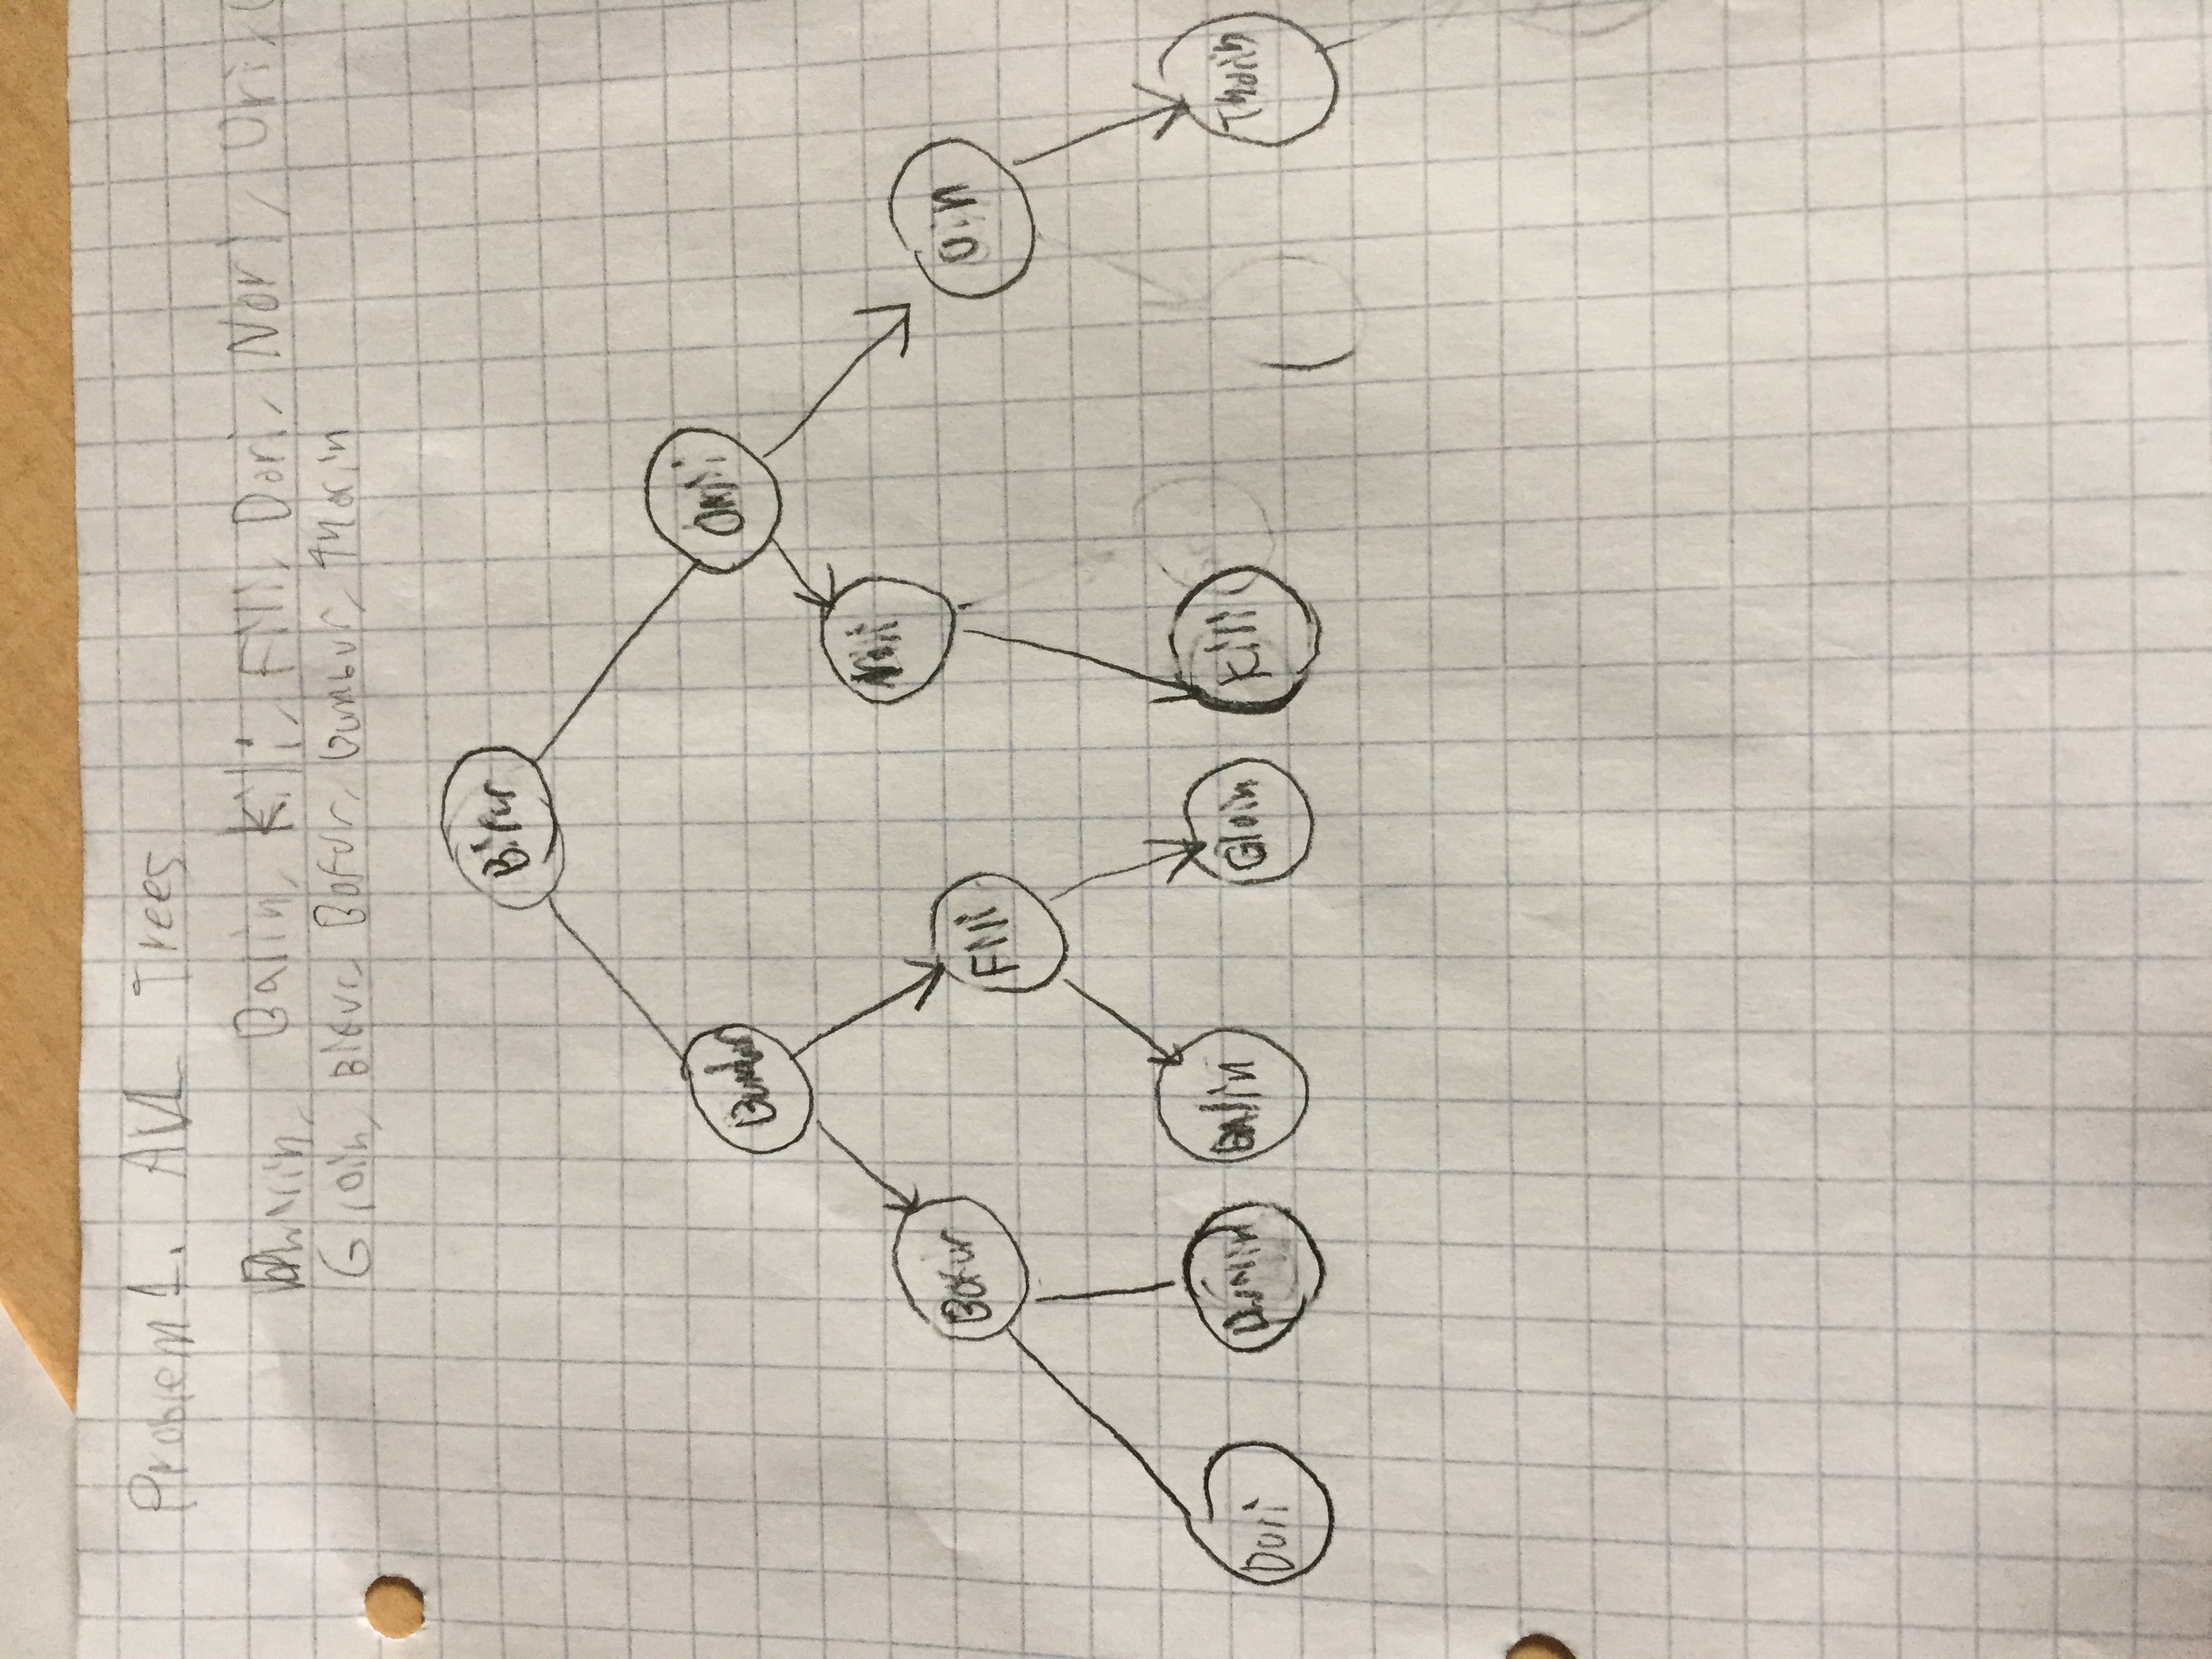 Problem 1. AVL Trees
Balin, Kili, Fili, Dori, Nori, Ori,
Gloin, Bifur, Bofur, Bumbur, Thorin
Bifur
Bofur
Fili
Oin
Dori
Dwalin
Balin
Gloin
Kili
Thorin